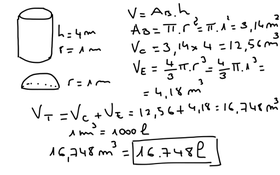 h=4m
r=1m
r=1m
V=AB.h
AB=π.r²=π.1²=3,14m²
Vc=3,14×4=12,56m³
VE=4/3π.r³=4/3π.1³=
=4,18m³
VT=Vc+VE=12,56+4,18=16,748m³
1m³=1000l
16,748m³=16.748l